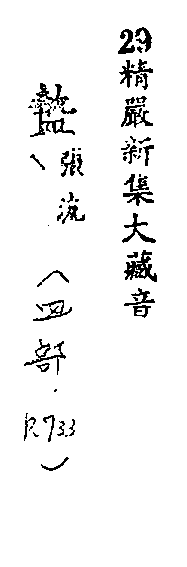 29精嚴新集大藏音
盩、張流(皿部.P.733)